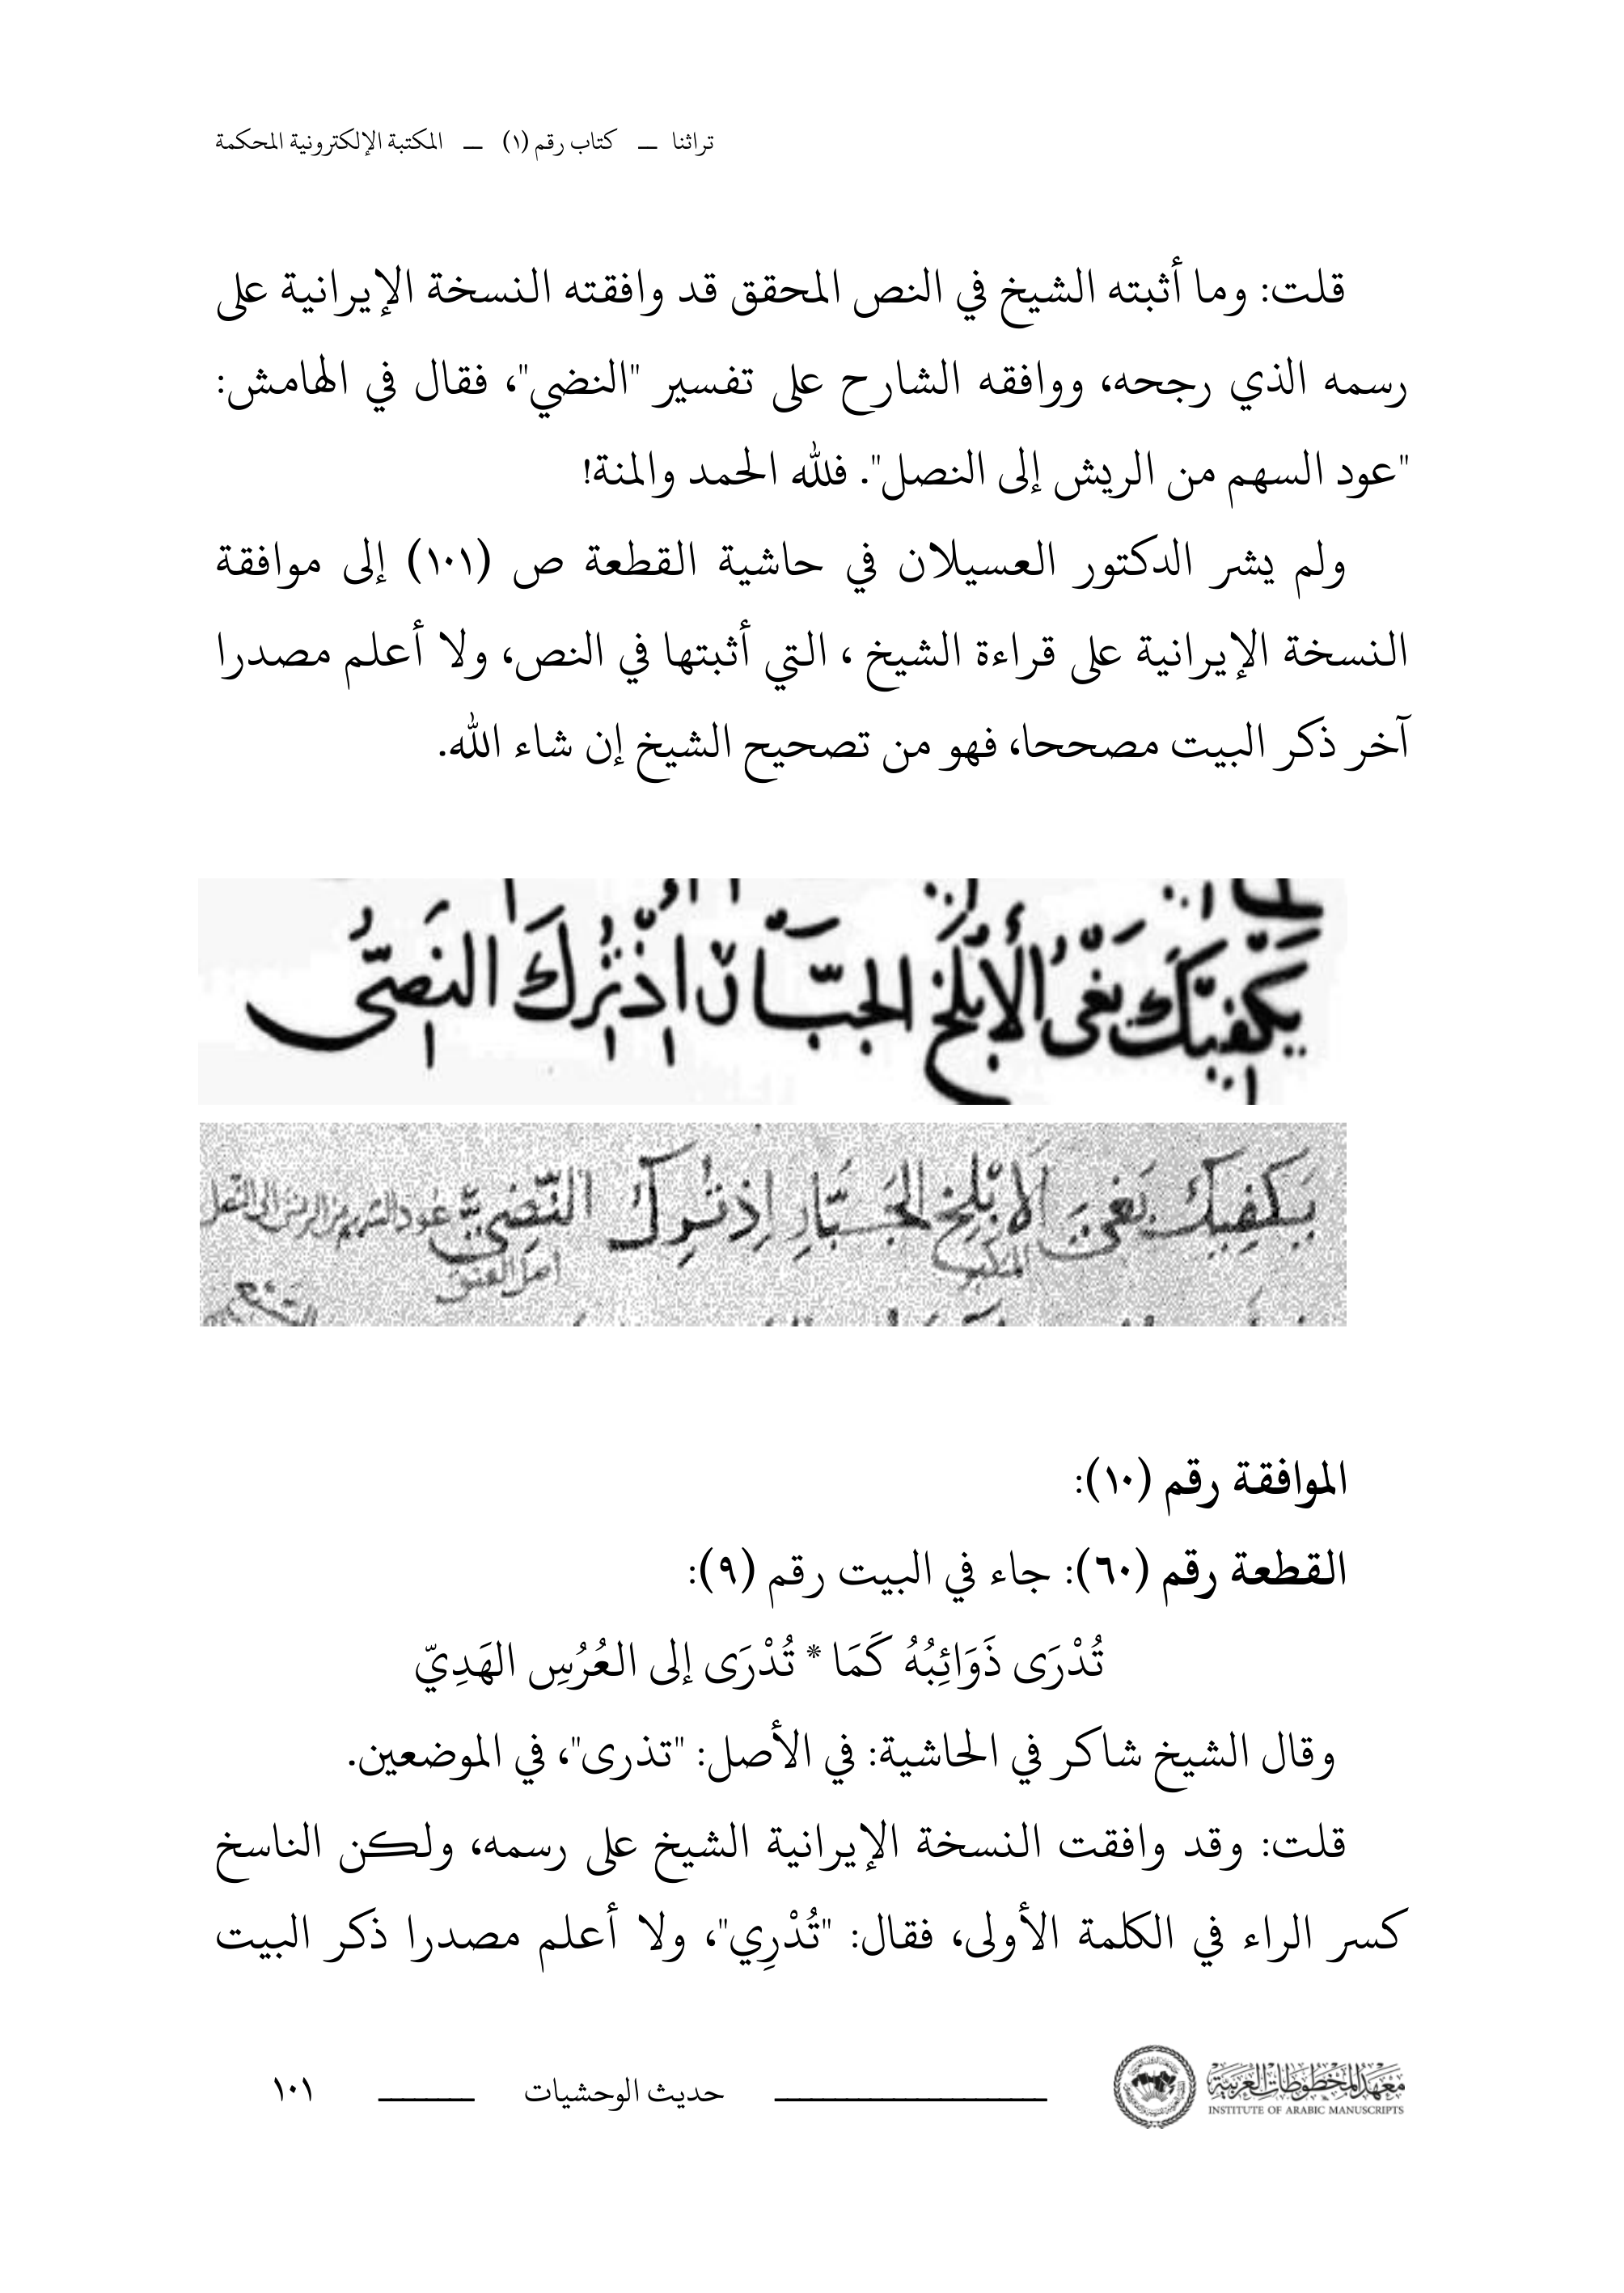 تراثنا ـــ كتاب رقم (١) ـــ المكتبة الإلكترونية المحكمة
قلت: وما أثبته الشيخ في النص المحقق قد وافقته النسخة الإيرانية على
رسمه الذي رجحه، ووافقه الشارح على تفسير "النضي"، فقال في الهامش:
"عود السهم من الريش إلى النصل". فلله الحمد والمنة!
ولم يشر الدكتور العسيلان في حاشية القطعة ص (١٠١) إلى موافقة
النسخة الإيرانية على قراءة الشيخ ، التي أثبتها في النص، ولا أعلم مصدرا
آخر ذكر البيت مصححا، فهو من تصحيح الشيخ إن شاء الله.
يكفيك بغى الأبلخ
يَكْفِيكَ بَغْىَ الابْلخِ الجَبَّارِ إِذ النَّضِىّ عود السهم من الريش الى النصل
المتكبر اصل العنق
الموافقة رقم (١٠):
القطعة رقم (٦٠): جاء في البيت رقم (٩):
تُدْرَى ذَوَائِبُهُ كَمَا * تُدْرَى إلى العُرُسِ الهَدِيّ
وقال الشيخ شاكر في الحاشية: في الأصل: "تذرى"، في الموضعين.
قلت: وقد وافقت النسخة الإيرانية الشيخ على رسمه، ولكن الناسخ
كسر الراء في الكلمة الأولى، فقال: "تُدْرِي"، ولا أعلم مصدرا ذكر البيت
معهد المخطوطات العربية
INSTITUTE OF ARABIC MANUSCRIPTS
حديث الوحشيات
١٠١